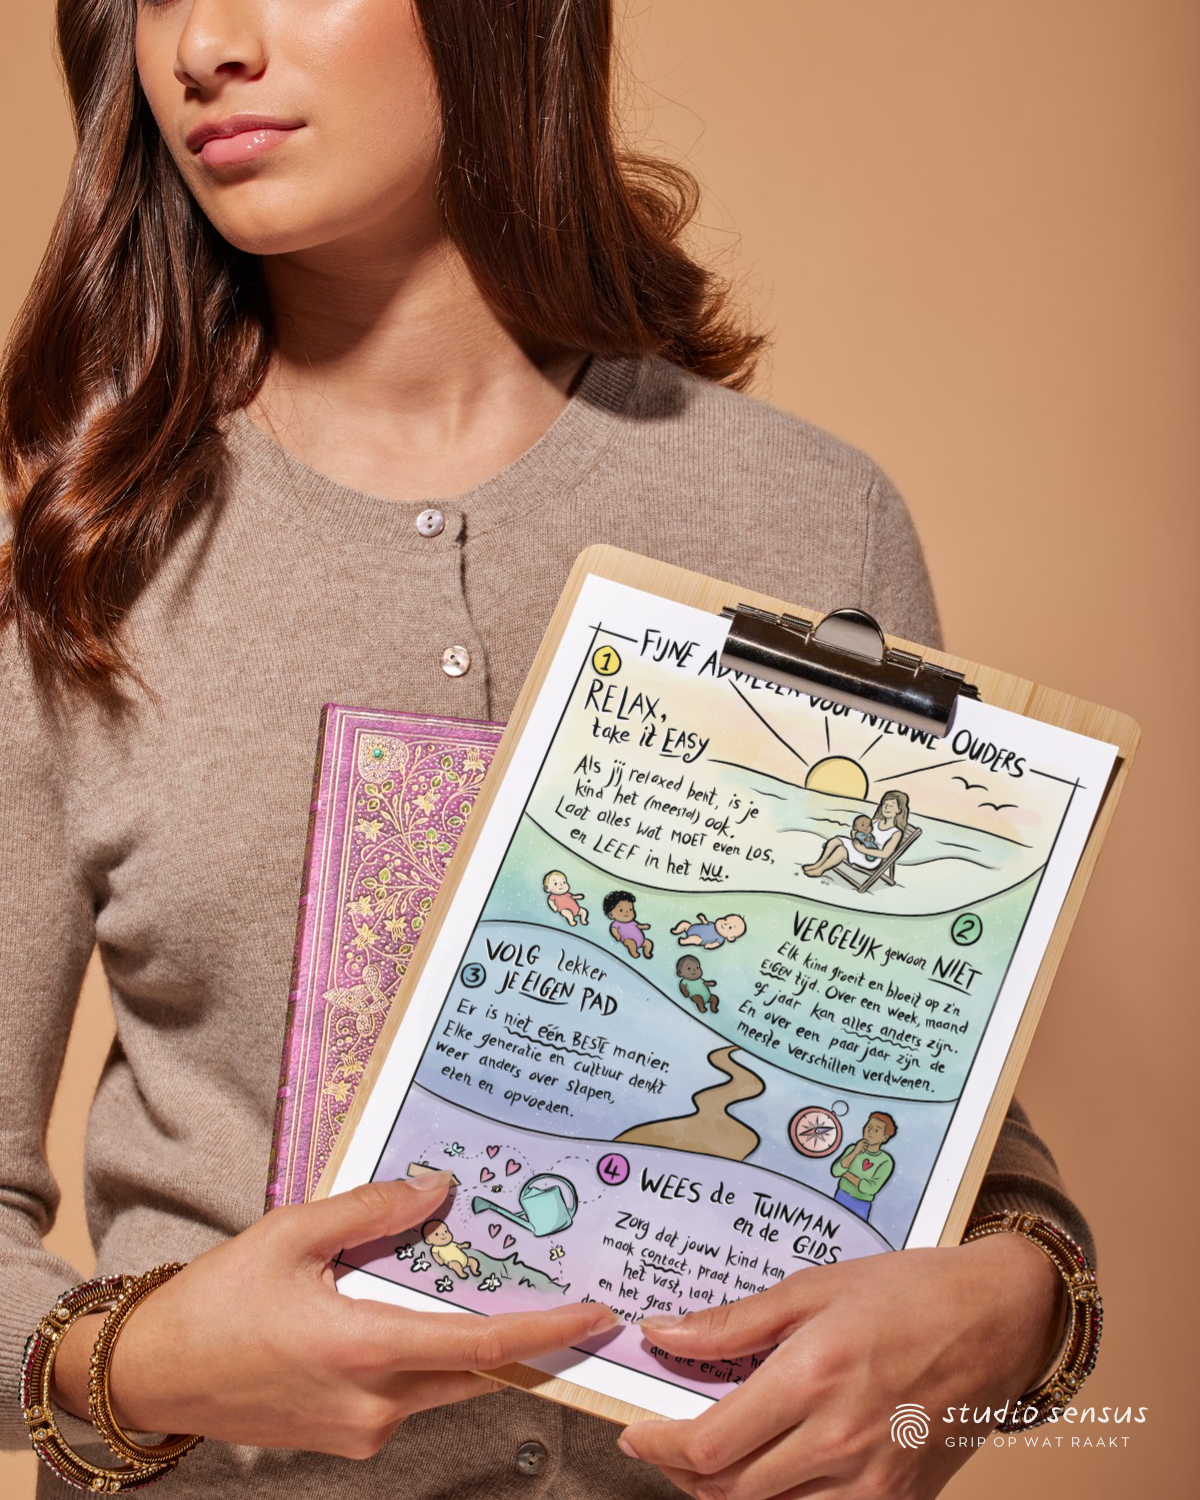 FIJNE ADVIEZEN VOOR NIEUWE OUDERS
1
RELAX,
take it EASY
Als jij relaxed bent, is je
kind het (meestal) ook.
Laat alles wat MOET even LOS,
en LEEF in het NU.
2
VERGELIJK gewoon NIET
Elk kind groeit en bloeit op z'n
EIGEN tijd. Over een week, maand
of jaar kan alles anders zijn.
En over een paar jaar zijn de
meeste verschillen verdwenen.
VOLG lekker
3 JE EIGEN PAD
Er is niet één BESTE manier.
Elke generatie en cultuur denkt
weer anders over slapen,
eten en opvoeden.
4 WEES de TUINMAN
en de GIDS
Zorg dat jouw kind kan
maak contact, praat
het vast, laat
en het gras
dat die
studio sensus
GRIP OP WAT RAAKT